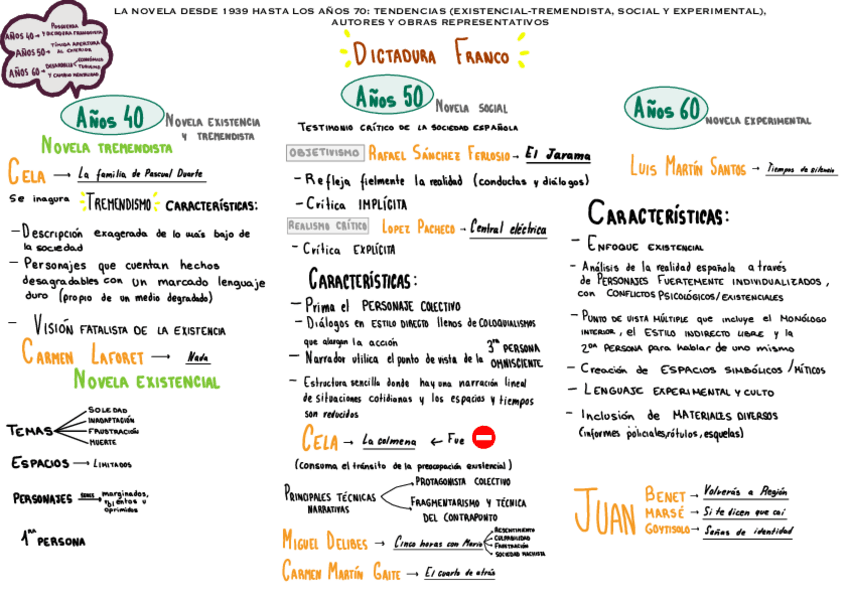 LA NOVELA DESDE 1939 HASTA LOS AÑOS 70: TENDENCIAS (EXISTENCIAL-TREMENDISTA, SOCIAL Y EXPERIMENTAL),
AUTORES Y OBRAS REPRESENTATIVOS
AÑOS 40 → POSGUERRA Y DICTADURA FRANQUISTA
AÑOS 50 → TÍMIDA APERTURA AL EXTERIOR
AÑOS 60 → DESARROLLO ECONÓMICO TURISMO Y CAMBIO MENTALIDAD
DICTADURA FRANCO
AÑOS 40
NOVELA EXISTENCIA
Y TREMENDISTA
NOVELA TREMENDISTA
CELA → La familia de Pascual Duarte
Se inagura TREMENDISMO CARACTERÍSTICAS:
- Descripción exagerada de lo más bajo de
la sociedad
- Personajes que cuentan hechos
desagradables con un marcado lenguaje
duro (propio de un medio degradado)
- VISIÓN FATALISTA DE LA EXISTENCIA
CARMEN LAFORET → Nada
NOVELA EXISTENCIAL
TEMAS
SOLEDAD
INADAPTACIÓN
FRUSTRACIÓN
MUERTE
ESPACIOS → LIMITADOS
PERSONAJES SERES → marginados,
violentos u
oprimidos
1ra PERSONA
AÑOS 50
NOVELA SOCIAL
TESTIMONIO CRÍTICO DE LA SOCIEDAD ESPAÑOLA
OBJETIVISMO RAFAEL SÁNCHEZ FERLOSIO → El Jarama
- Refleja fielmente la realidad (conductas y diálogos)
- Crítica IMPLÍCITA
REALISMO CRÍTICO LOPEZ PACHECO → Central eléctrica
- Crítica EXPLÍCITA
CARACTERÍSTICAS:
- Prima el PERSONAJE COLECTIVO
- Diálogos en ESTILO DIRECTO llenos de COLOQUIALISMOS
que alargan la acción
- Narrador utilica el punto de vista de la 3ra PERSONA
OMNISCIENTE
- Estructura sencilla donde hay una narración lineal
de situaciones cotidianas y los espacios y tiempos
son reducidos
CELA → La colmena ← Fue
(consuma el tránsito de la preocupación existencial)
PRINCIPALES TÉCNICAS
NARRATIVAS
PROTAGONISTA COLECTIVO
FRAGMENTARISMO Y TÉCNICA
DEL CONTRAPUNTO
MIGUEL DELIBES → Cinco horas con Mario
RESENTIMIENTO
CULPABILIDAD
FRUSTRACIÓN
SOCIEDAD MACHISTA
CARMEN MARTÍN GAITE → El cuarto de atrás
AÑOS 60
NOVELA EXPERIMENTAL
LUIS MARTÍN SANTOS → Tiempos de silencio
CARACTERÍSTICAS:
- ENFOQUE EXISTENCIAL
- Análisis de la realidad española a través
de PERSONAJES FUERTEMENTE INDIVIDUALIZADOS,
con CONFLICTOS PSICOLÓGICOS/EXISTENCIALES
- PUNTO DE VISTA MÚLTIPLE que incluye el MONÓLOGO
INTERIOR, el ESTILO INDIRECTO LIBRE y la
2da PERSONA para hablar de uno mismo
- Creación de ESPACIOS SIMBÓLICOS/MÍTICOS
- LENGUAJE EXPERIMENTAL Y CULTO
- Inclusión de MATERIALES DIVERSOS
(informes policiales, rótulos, esquelas)
JUAN
BENET → Volverás a Región
MARSÉ → Si te dicen que caí
GOYTISOLO → Señas de identidad